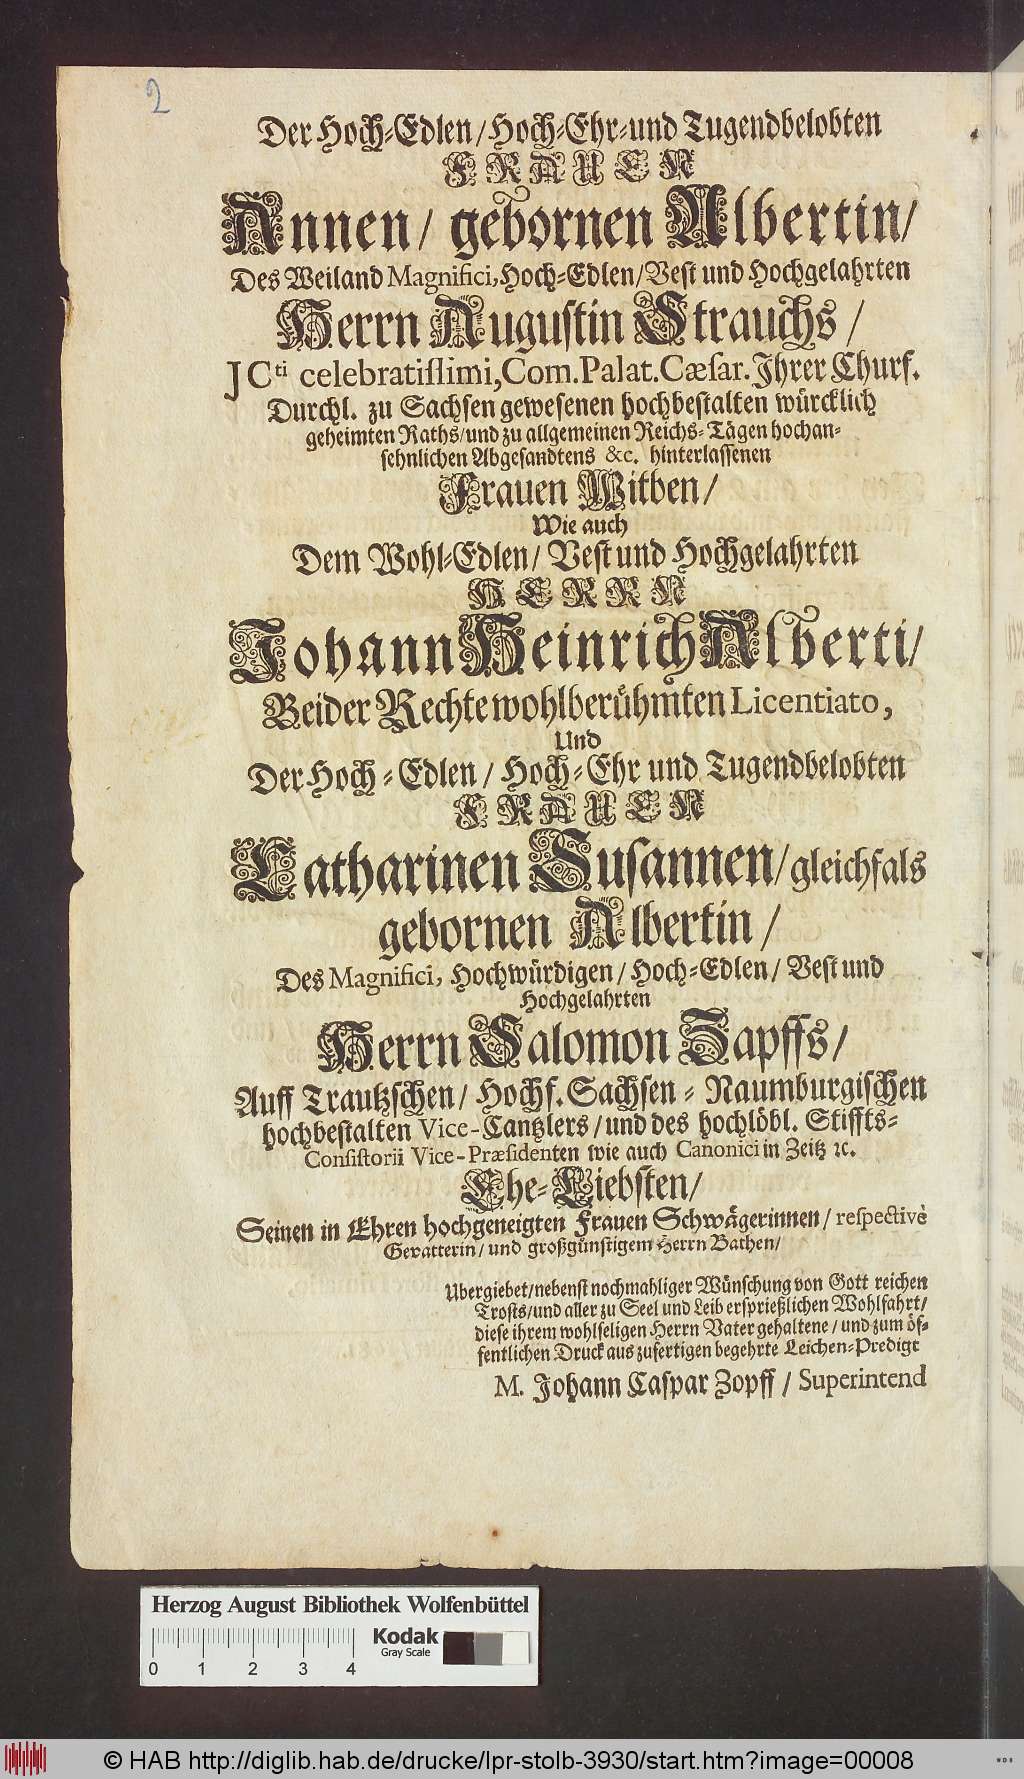 2
Der Hoch-Edlen/Hoch-Ehr-und Tugendbelobten
FRAUEN
Annen/ gebornen Albertin/
Des Weiland Magnifici, Hoch-Edlen/Vest und Hochgelahrten
Herrn Augustin Strauchs/
JCti celebratissimi, Com. Palat. Cæsar. Ihrer Churf.
Durchl. zu Sachsen gewesenen hochbestalten würcklich
geheimten Raths/und zu allgemeinen Reichs-Tägen hochan-
sehnlichen Abgesandtens &c. hinterlassenen
Frauen Witben/
Wie auch
Dem Wohl-Edlen/ Vest und Hochgelahrten
HERRN
Johann Heinrich Alberti/
Beider Rechte wohlberühmten Licentiato,
Und
Der Hoch-Edlen/ Hoch-Ehr und Tugendbelobten
FRAUEN
Catharinen Susannen/gleichfals
gebornen Albertin/
Des Magnifici, Hochwürdigen/ Hoch-Edlen/ Vest und
Hochgelahrten
Herrn Salomon Zapffs/
Auff Trautzschen/ Hochf. Sachsen-Naumburgischen
hochbestalten Vice-Cantzlers/und des hochlöbl. Stiffts-
Consistorii Vice-Præsidenten wie auch Canonici in Zeitz ꝛc.
Ehe-Liebsten/
Seinen in Ehren hochgeneigten Frauen Schwägerinnen/ respectivè
Gevatterin/ und großgünstigem Herrn Pathen/
Ubergiebet/nebenst nochmahliger Wünschung von Gott reichen
Trosts/und aller zu Seel und Leib ersprießlichen Wohlfahrt/
diese ihrem wohlseligen Herrn Vater gehaltene/ und zum öf-
fentlichen Druck auszufertigen begehrte Leichen-Predigt
M. Johann Caspar Zopff/ Superintend
Herzog August Bibliothek Wolfenbüttel
Kodak
Gray Scale
0 1 2 3 4
© HAB http://diglib.hab.de/drucke/lpr-stolb-3930/start.htm?image=00008